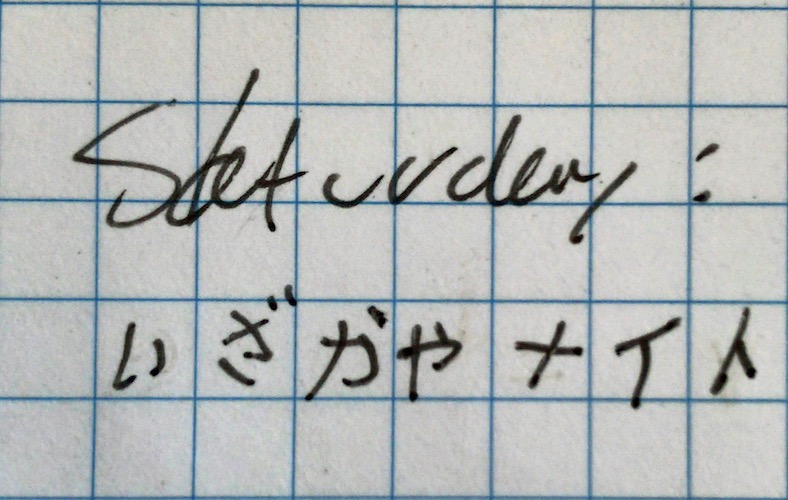 Saturday:
いざかやナイト